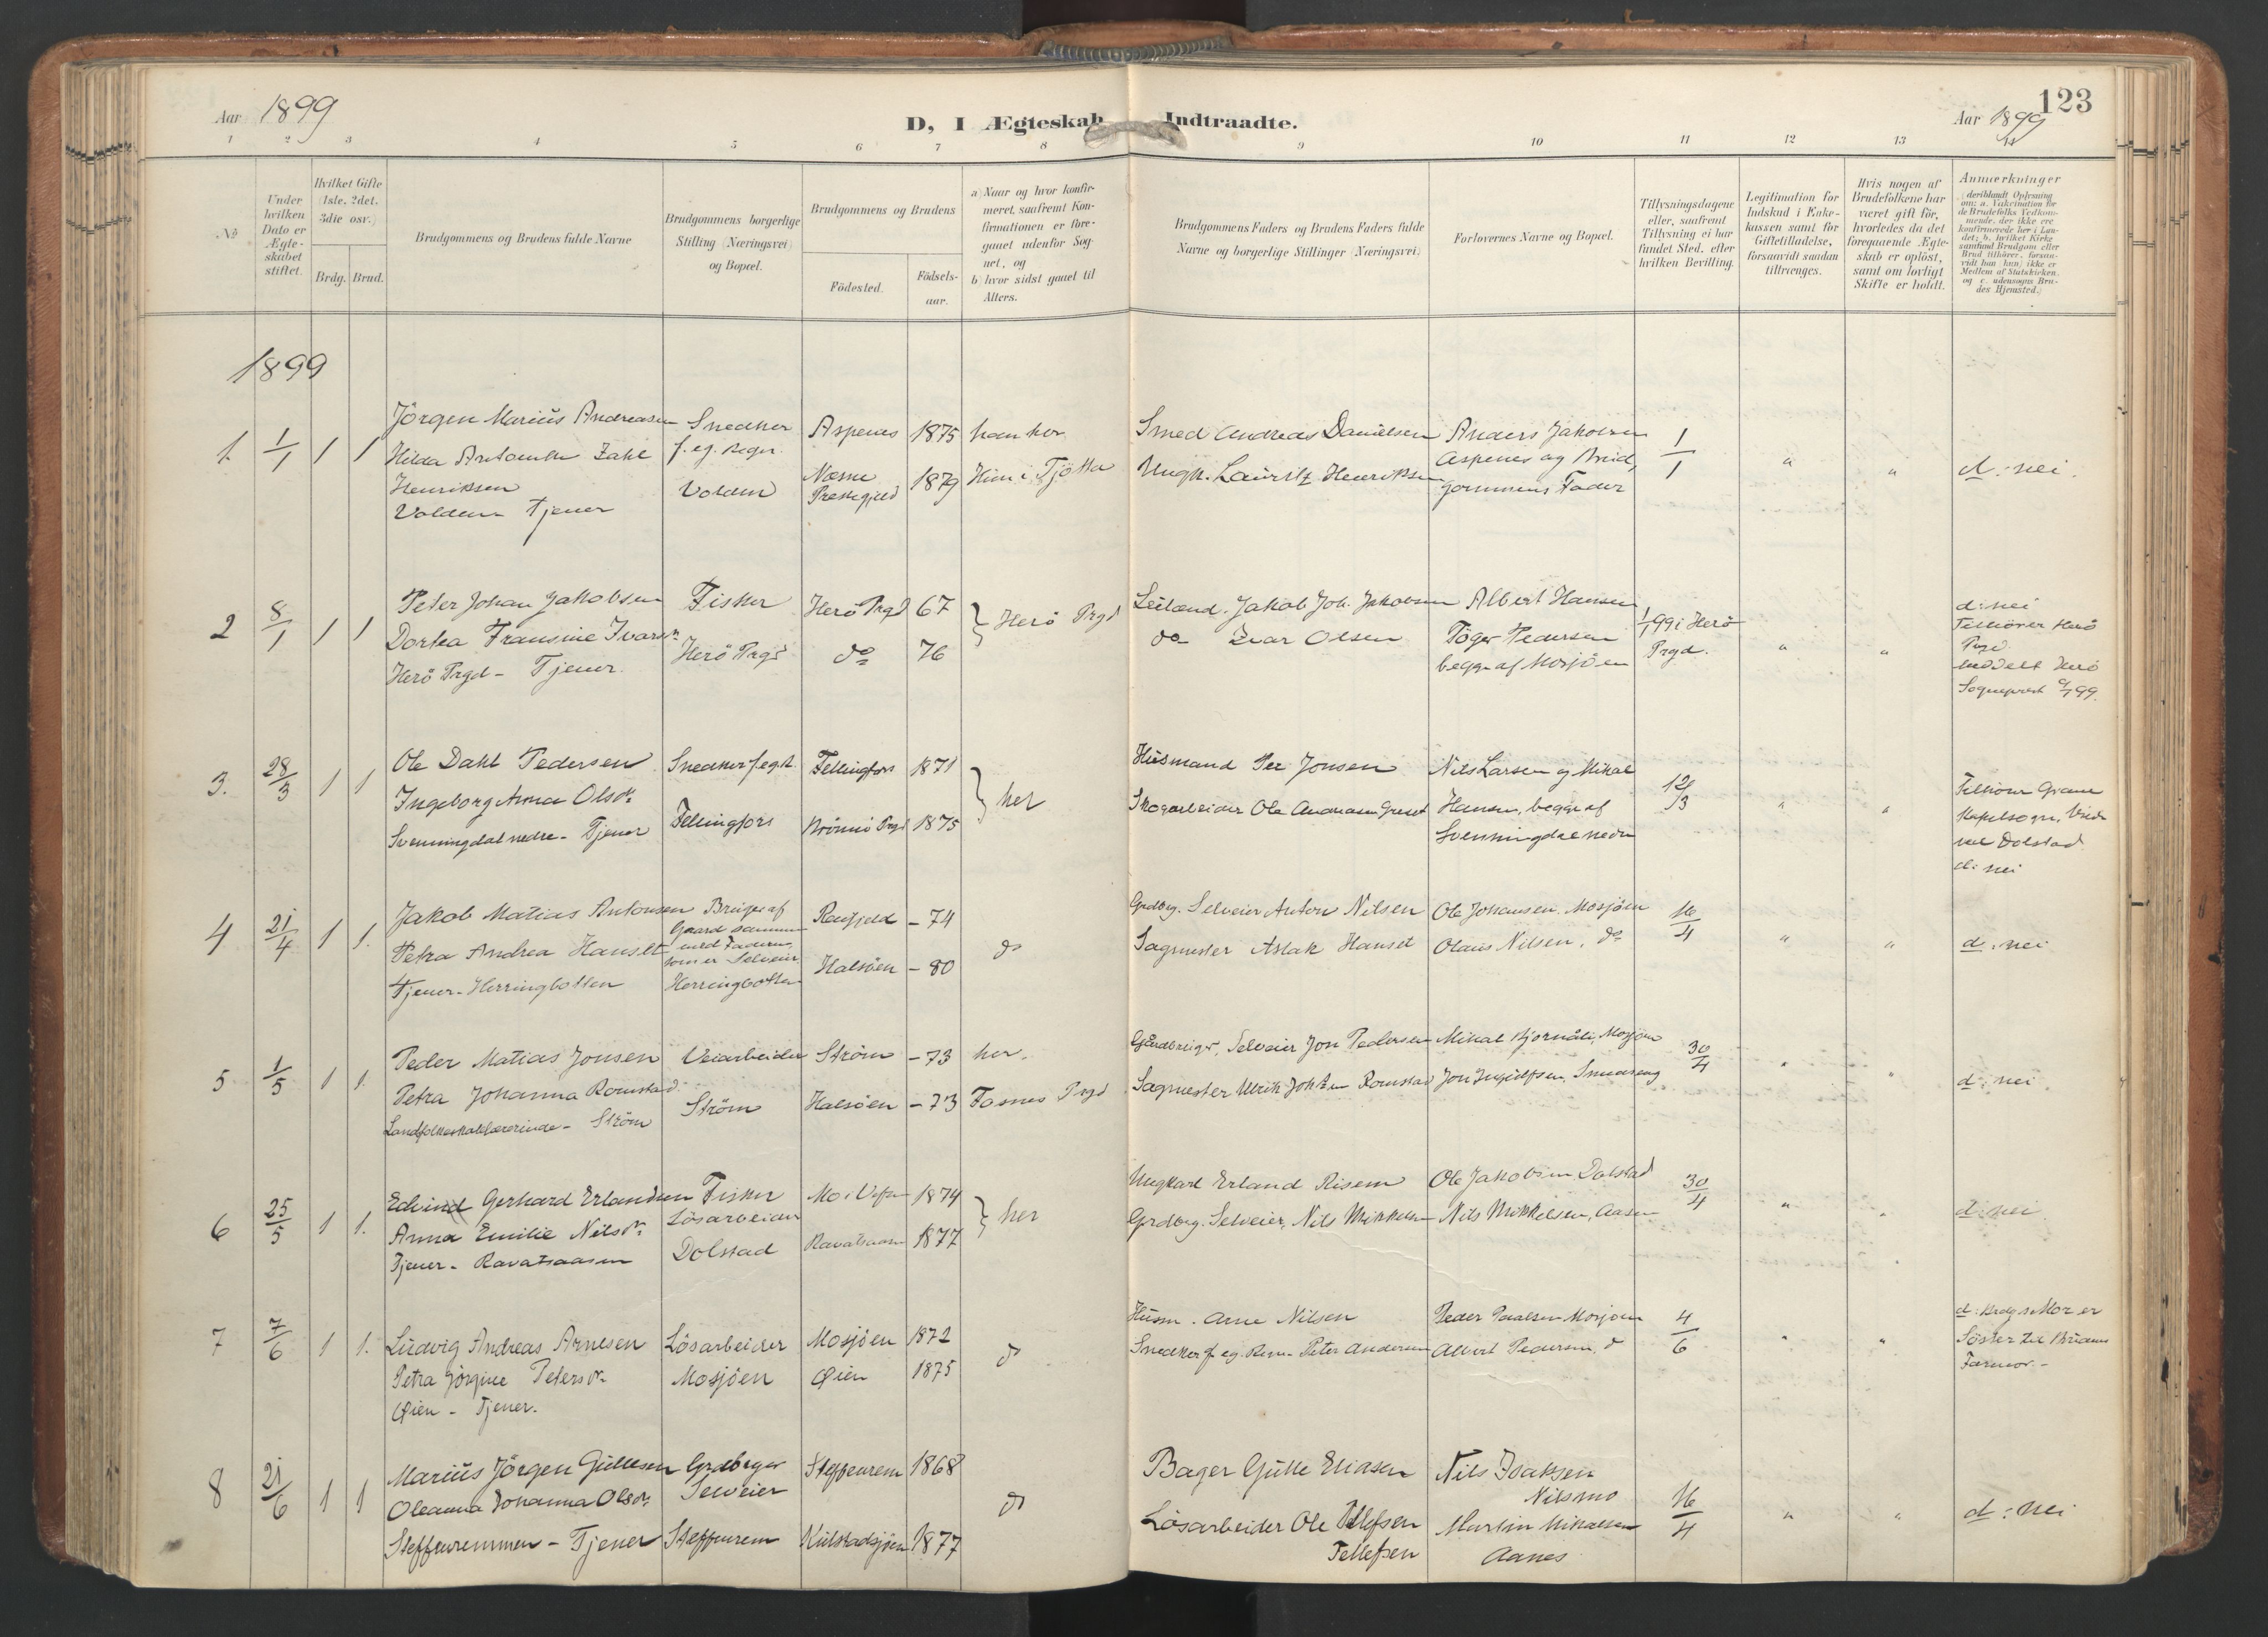 Aar 1899
D, I Ægteskab Indtraadte.
Aar 1899
123
1 2 3 4 5 6 7 8 9 10 11 12 13 14
No
Under hvilken Dato er Ægteskabet stiftet.
Hvilket Gifte (1ste, 2det, 3die osv.)
Brdg. Brud.
Brudgommens og Brudens fulde Navne
Brudgommens borgerlige Stilling (Næringsvei) og Bopæl.
Brudgommens og Brudens
Födested.
Födsels-aar.
a) Naar og hvor konfir-
meret, saafremt Kon-
firmationen er fore-
gaaet udenfor Sog-
net, og
b) hvor sidst gaaet til
Alters.
Brudgommens Faders og Brudens Faders fulde
Navne og borgerlige Stillinger (Næringsvei)
Forlovernes Navne og Bopæl.
Tillysningsdagene
eller, saafremt
Tillysning ei har
fundet Sted, efter
hvilken Bevilling.
Legitimation for
Indskud i Enke-
kassen samt for
Giftetilladelse,
forsaavidt saadan
tiltrænges.
Hvis nogen af
Brudefolkene har
været gift för,
hvorledes da det
foregaaende Ægte-
skab er oplöst,
samt om lovligt
Skifte er holdt.
Anmærkninger
(deriblandt Oplysning
om: a. Vakcination for
de Brudefolks Vedkom-
mende, der ikke ere
konfirmerede her i Lan-
det; b. hvilket Kirke
samfund Brudgom eller
Brud tilhörer, forsaa-
vidt han (hun) ikke er
Medlem af Statskirken,
og c. udensogns Bru-
des Hjemsted.)
1899
1. 1/1 1 1
Jörgen Marius Andreasen
Hilda Antonette Zahl
Henriksen
Volden Tjener
Snedker
f. eg. Regn.
Volden
Aspenes 1875
Næsne
Prestegjeld 1879
han her
Hun i Tjötta
Smed Andreas Danielsen
Ungk. Lauritz Henriksen
Anders Jakobsen
Aspenes og Brud
gommens Fader
1/1
" "
d: nei.
2 8/1 1 1
Peter Johan Jakobsen
Dorkea Fransine Ivarsdr
Herö Prgd - Tjener.
Fisker
Herö Prgd
Herö Prgd 67
do 76
Herö Prgd
Leilænd. Jakob Joh. Jakobsen
do Ivar Olsen
Albert Hansen
Töger Pedersen
begge af Mosjöen
1/1 99 i Herö
Prgd.
" "
d: nei
Tilhörer Herö
Prgd.
meddelt Herö
Sogneprest 9/1 99.
3. 28/3 1 1
Ole Dahl Pedersen
Ingeborg Anna Olsdr
Svenningdal nedre - Tjener
Snedker f. eg. R.
Fellingfors
Fellingfors 1871
Brönnö Prgd 1875
her
Husmand Per Jonsen
Skogarbeider Ole Andreasen Grenet
Nils Larsen og Mikal
Hansen, begge af
Svenningdal nedre
12/3
" "
Tilhörer Grane
Kapelsogn, Viede
ved Dolstad
d: nei
4 21/4 1 1.
Jakob Matias Antonsen
Petra Andrea Hanset
Tjener - Herringbotten
Bruger af
Gaard sammen
med Faderen
som er Selveier
Herringbotten
Røsfjeld - 74
Halsöen - 80
do
Grdbrg. Selveier Anton Nilsen
Sagmester Aslak Hanset
Ole Johansen, Mosjöen
Olaus Nilsen, do
16/4
" "
d: nei
5 1/5 1 1.
Peder Matias Jonsen
Petra Johanna Romstad
Landfolkeskolelærerinde - Ström
Veiarbeider
Ström
Ström - 73
Halsöen - 73
her.
Fosnes Prgd
Gårdbruger, Selveier Jon Pedersen
Sagmester Ulrik Johsen Romstad
Mikal Bjornåli, Mosjöen
Jon Ingulfsen, Smedseng
30/4
" "
d: nei
6 25/5 1 1.
Edvind Gerhard Erlandsen
Anna Emilie Nilsdr
Tjener - Ravatsaasen
Fisker
Lösarbeider
Dolstad
Mo i Vefsn 1874
Ravatsaasen 1877
her
Ungkarl Erland Risem
Grdbrg. Selveier, Nils Mikkelsen
Ole Jakobsen Dolstad
Nils Mikkelsen, Aasen
30/4
" "
d: nei
7 7/6 1 1.
Ludvig Andreas Arnesen
Petra Jörgine Petersdr
Øien - Tjener.
Lösarbeider
Mosjöen
Mosjöen 1872
Øien 1875
do
Husm. Arne Nilsen
Snedker f. eg. Regn. Peter Andersen
Peder Paulsen Mosjöen
Albert Pedersen, do
4/6
" "
d: Brdgs Mor er
Söster til Brudens
Farmor. -
8 21/6 1 1
Marius Jörgen Gullesen
Oleanna Johanna Olsdr
Steffenremmen - Tjener
Grdbrger
Selveier
Steffenrem
Steffenrem 1868
Kulstadsjöen 1877
do
Bager Gulle Eliasen
Lösarbeider Ole Tellefsen
Tellefsen
Nils Isaksen
Nilsmo
Martin Mikalsen
Aanes
16/4
" "
d: nei